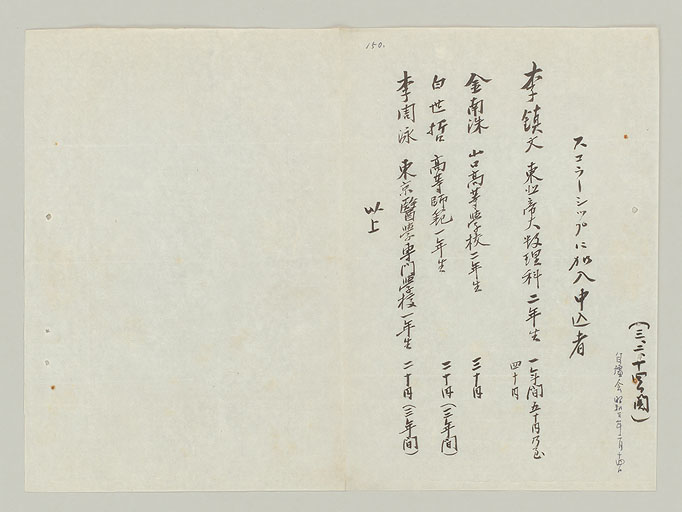 150.
(三、二、十四、関)
昭和十一年二月十四日
スコラーシップに加入申込者
李鎮文 東北帝大数理科二年生 一年間五十円乃至四十円
金南洙 山口高等学校二年生 三十円
白世哲 高等師範一年生 二十円(三年間)
李周泳 東京醫学専門學校一年生 二十円(三年間)
以上